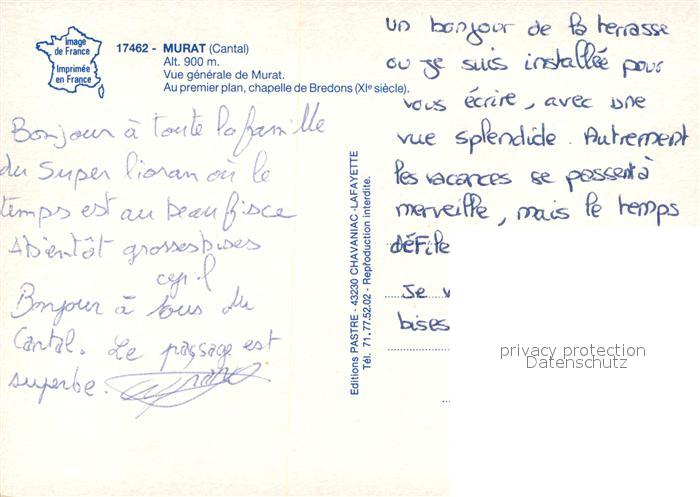 Image
de France
Imprimée
en France
17462 - MURAT (Cantal)
Alt. 900 m.
Vue générale de Murat.
Au premier plan, chapelle de Bredons (XIe siècle).
Bonjour à toute la famille
du Super lioran où le
temps est au beau fisce
Abientôt grosses bises
Bonjour à tous du
Cantal. Le passage est
superbe.
Editions PASTRE - 43230 CHAVANIAC-LAFAYETTE
Tél. 71.77.52.02 - Reproduction interdite.
un bonjour de la terrasse
ou je suis installée pour
vous écrire, avec une
vue splendide. Autrement
les vacances se passent à
merveille, mais le temps
défile
Je
bises
privacy protection
Datenschutz